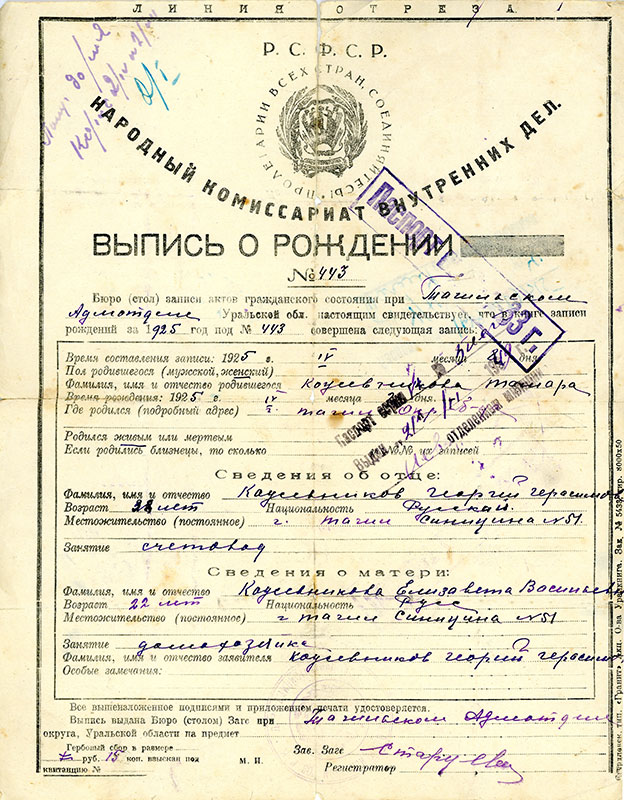 ЛИНИЯ ОТРЕЗА
Р. С. Ф. С. Р.
ПРОЛЕТАРИИ ВСЕХ СТРАН, СОЕДИНЯЙТЕСЬ!
НАРОДНЫЙ КОМИССАРИАТ ВНУТРЕННИХ ДЕЛ.
ВЫПИСЬ О РОЖДЕНИИ
№ 443
Бюро (стол) записи актов гражданского состояния при Тагильском
Адмотделе Уральской обл. настоящим свидетельствует, что в книге записи
рождений за 1925 год под № 443 совершена следующая запись:
Время составления записи: 1925 г. IV месяца дня.
Пол родившегося (мужской, женский)
Фамилия, имя и отчество родившегося Кожевникова Тамара
Время рождения: 1925 г. IV месяца дня.
Где родился (подробный адрес) г. Тагил
Родился живым или мертвым
Если родились близнецы, то сколько №№ их записей
Сведения об отце:
Фамилия, имя и отчество Кожевников Георгий Герасимов
Возраст 22 лет Национальность Русский
Местожительство (постоянное) г. Тагил Синицина №51
Занятие счетовод
Сведения о матери:
Фамилия, имя и отчество Кожевникова Елизавета Васильев
Возраст 22 лет Национальность Русс
Местожительство (постоянное) г Тагил Синицина №51
Занятие домохозяйка
Фамилия, имя и отчество заявителя Кожевников Георгий Герасимов
Особые замечания:
Все вышеизложенное подписями и приложением печати удостоверяется.
Выпись выдана Бюро (столом) Загс при Тагильском Адмотделе
округа, Уральской области на предмет
Гербовый сбор в размере
руб. 15 коп. взыскан под
квитанцию №
М. П.
Зав. Загс
Регистратор
Паспорт
33 г.
Паспорт серии
Выдан
отделением милиции